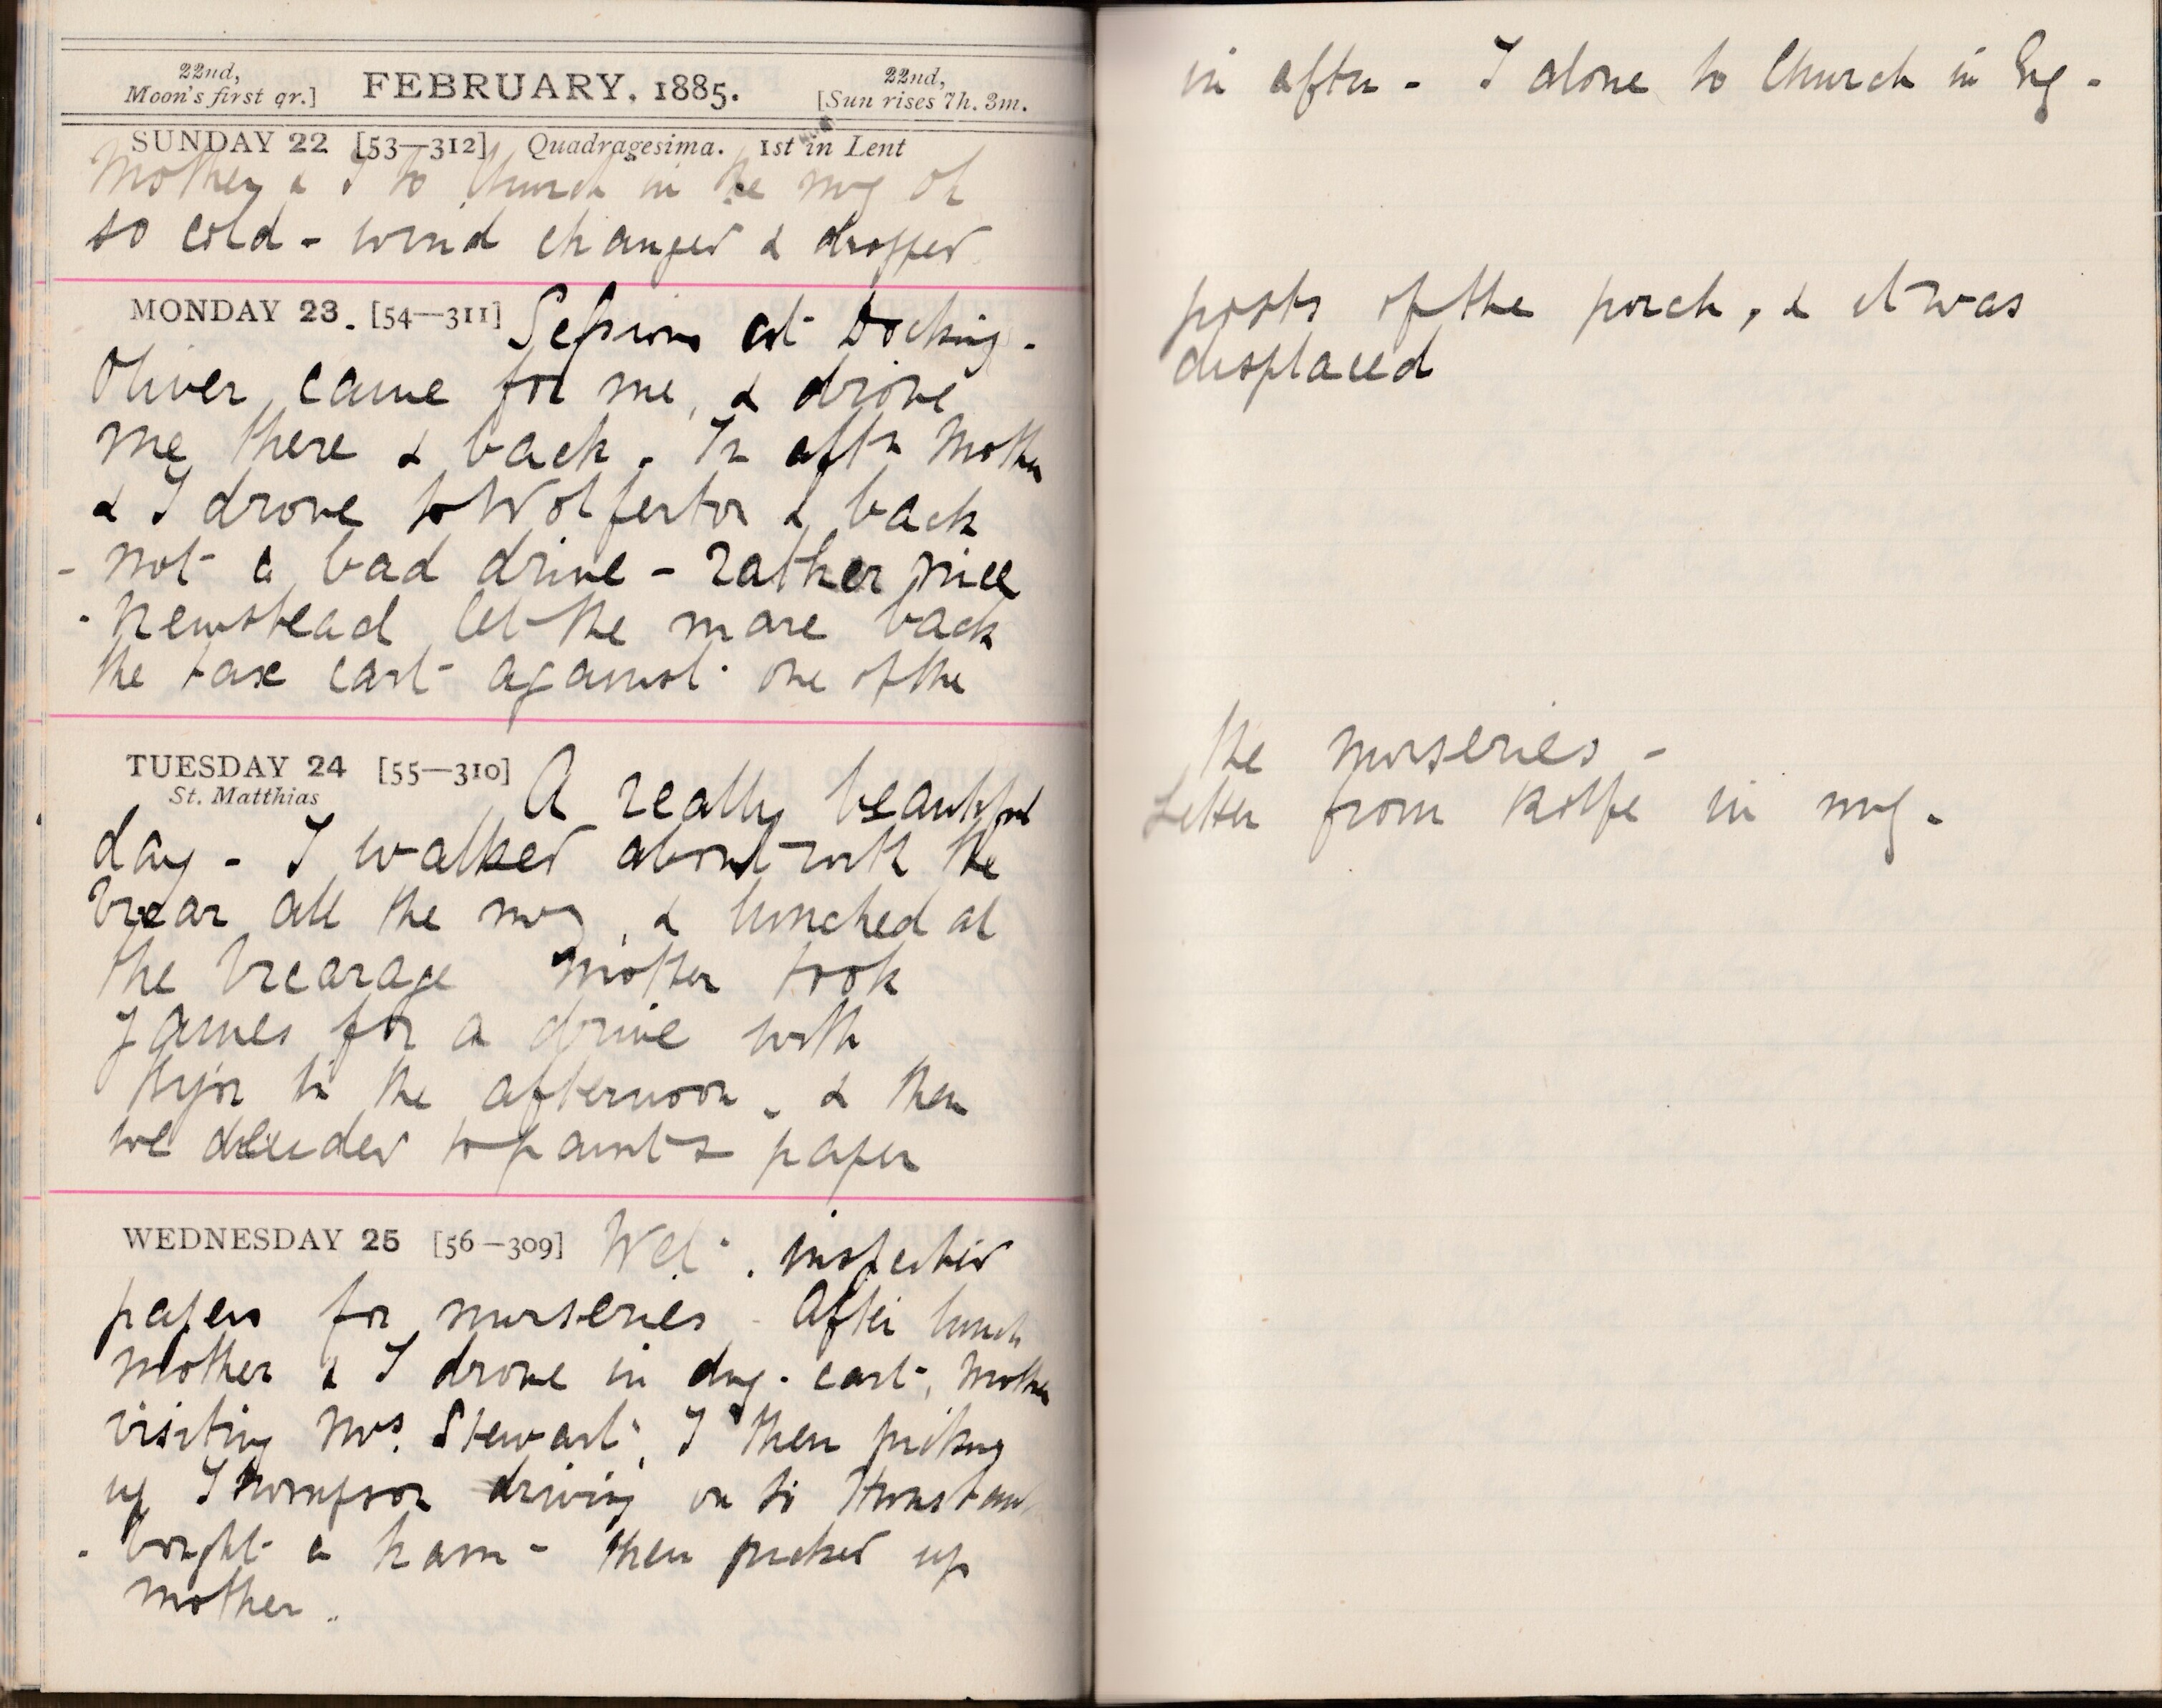 22nd,
Moon's first qr.]
FEBRUARY, 1885.
22nd,
[Sun rises 7h. 3m.
SUNDAY 22 [53—312] Quadragesima. 1st in Lent
Mother & I to Church in the mg oh
so cold - wind changed & dropped
MONDAY 23. [54—311] Sessions at Docking -
Oliver came for me, & drove
me there & back. In aftn Mother
& I drove to Wolferton & back
- not a bad drive - rather nice
- Newstead let the mare back
the tax cart against one of the
TUESDAY 24 [55—310] A really beautiful
St. Matthias
day - I walked about with the
Vicar all the mg, & lunched at
the Vicarage Mother took
James for a drive with
in the afternoon, & then
we decided to paint & paper
WEDNESDAY 25 [56—309] Wet. inspected
papers for nurseries - After lunch
Mother & I drove in dog-cart, Mother
visiting Mrs. Stewart, I then picking
up Thompson driving on to
- bought a ham - then picked up
mother.
in aftn - I alone to Church in Evg -
posts of the porch, & it was
displaced
the nurseries -
Letter from Rolfe in mg.